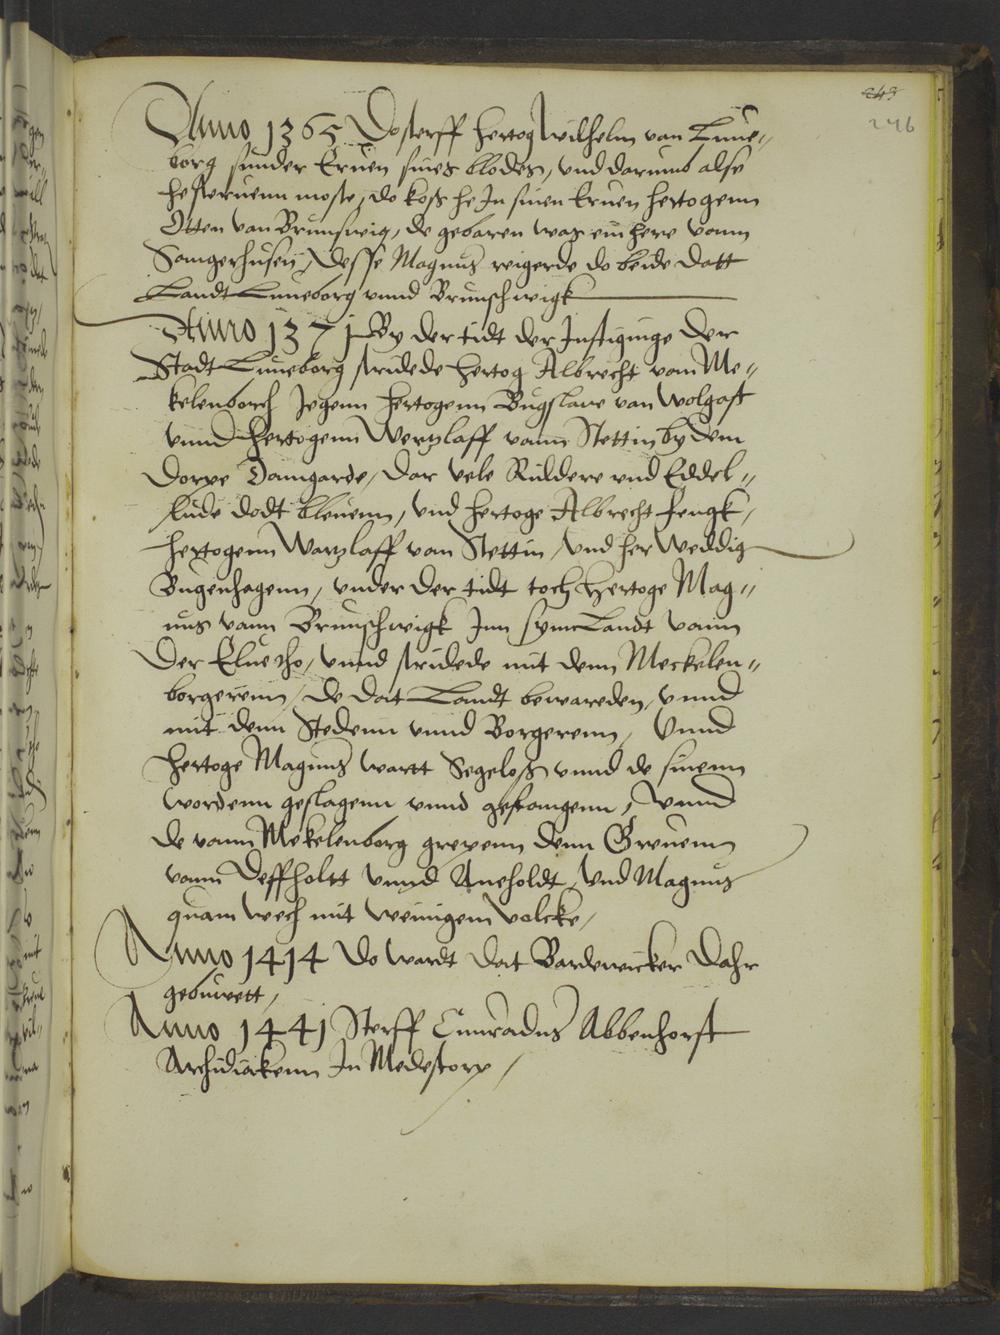 249
246
Anno 1365 Do sterff hertog Wilhelm van Lune„
borg sunder Eruen sines blodes, vnd darumb alse
he steruenn moste, do koß he In sinen Eruen hertogenn
Otten van Brunswig, de gebaren was ein here vann
Sangerhusen, desse Magnus regerde do beide datt
Landt Luneborg vnnd Brunschwigk
Anno 1371 By der tidt der Instiginge der
Stadt Luneborg stridede hertog Albrecht van Me„
kelenborch Jegenn hertogenn Bugslave van Wolgast
vnnd hertogenn Wertzlaff vann Stettin by dem
Dorpe Damgarde, dar vele Ruldere vnd Eddel„
lude dodt bleuenn, vnd hertoge Albrecht fengk,
hertogenn Wartzlaff van Stettin, vnd her Weddig
Bugenhagenn, vnder der tidt toch hertoge Mag„
nus vann Brunschwigk Inn syne Landt vann
der Elue tho, vnnd stridede mit denn Meckelen„
borgerenn, de dat Landt bewareden, vnnd
mit denn Stedenn vnnd Borgerenn, Vnnd
hertoge Magnus wartt Segeloß vnnd de sinenn
wordenn geslagenn vnnd gefangenn, vnnd
de vann Mekelenborg grepenn denn Greuenn
vann Deffholtt vnnd Aneholdt, vnd Magnus
quam wech mit weinigem volcke,
Anno 1414 do wardt dat Bardewicker Dahr
gebuwett,
Anno 1441 Sterff Cunradus Abbenhorst
Archidiakenn In Modestorp,